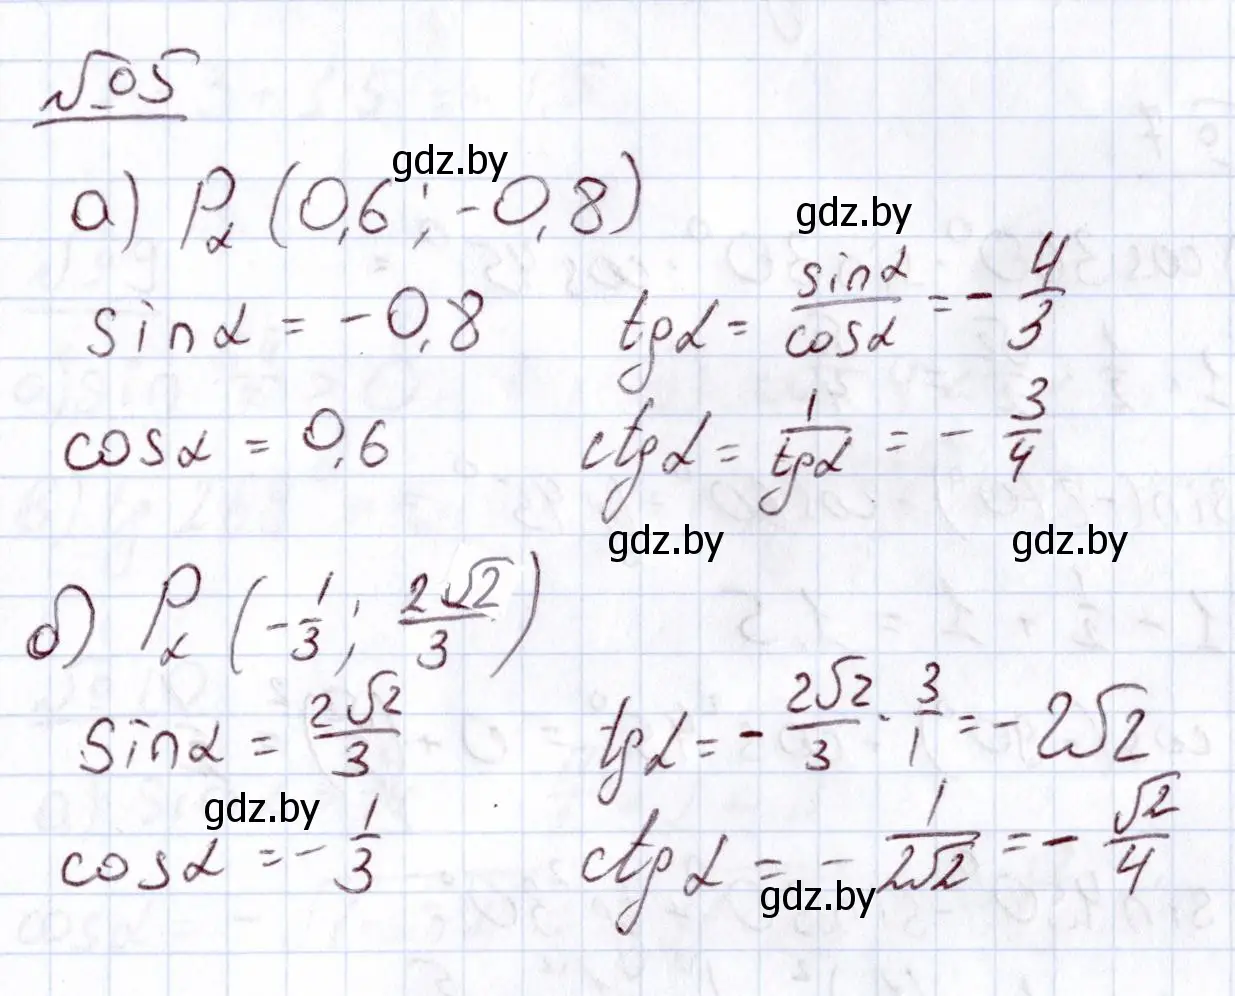 №5
gdz.by
а) P_α (0,6; -0,8)
gdz.by
sin α = -0,8   tg α = sin α / cos α = - 4/3
cos α = 0,6   ctg α = 1 / tg α = - 3/4
gdz.by gdz.by
б) P_α (-1/3; 2√2/3)
sin α = 2√2/3   tg α = - 2√2/3 · 3/1 = -2√2
gdz.by
cos α = - 1/3   ctg α = - 1/(2√2) = - √2/4
gdz.by